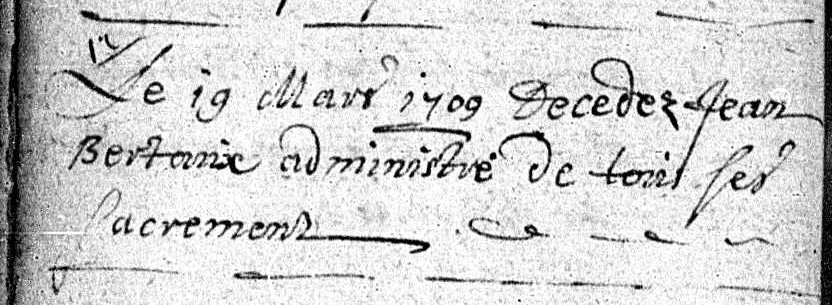 Le 19 Mars 1709 Decedez Jean
Bertaux administré de tous ses
sacrement